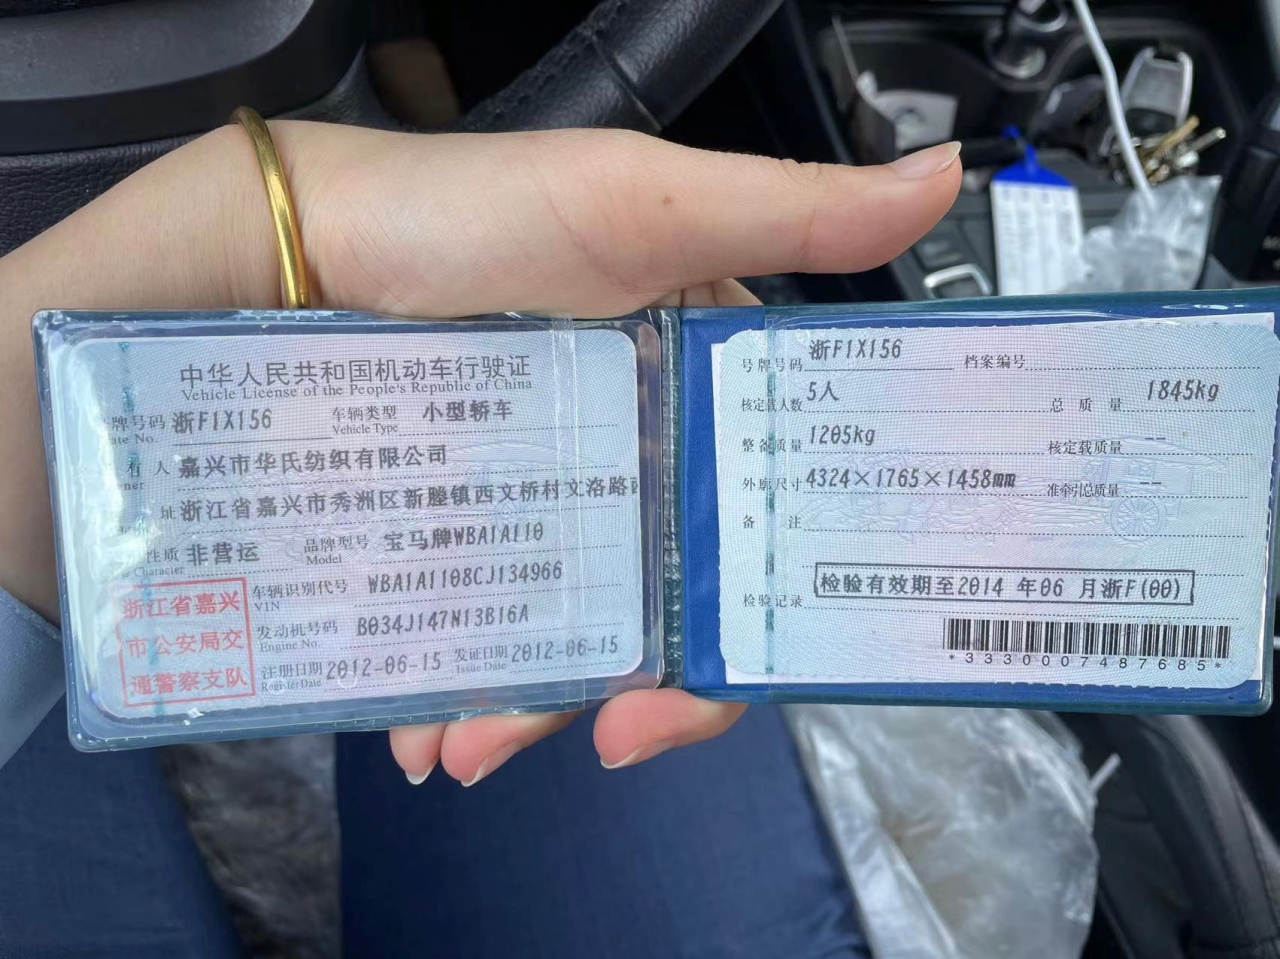 中华人民共和国机动车行驶证
Vehicle License of the People's Republic of China
牌号码 浙F1X156 车辆类型 小型轿车
ate No. Vehicle Type
有人 嘉兴市华氏纺织有限公司
ner
址 浙江省嘉兴市秀洲区新塍镇西文桥村文洛路
性质 非营运 品牌型号 宝马牌WBA1A110
Character Model
浙江省嘉兴
市公安局交
通警察支队
车辆识别代号 WBA1A1108CJ134966
VIN
发动机号码 B034J147N13B16A
Engine No.
注册日期 2012-06-15 发证日期 2012-06-15
Register Date Issue Date
号牌号码 浙F1X156 档案编号
核定载人数 5人 总质量 1845kg
整备质量 1205kg 核定载质量 --
外廓尺寸 4324×1765×1458mm 准牵引总质量 --
备注
检验记录 检验有效期至2014 年06 月浙F(00)
*3330007487685*